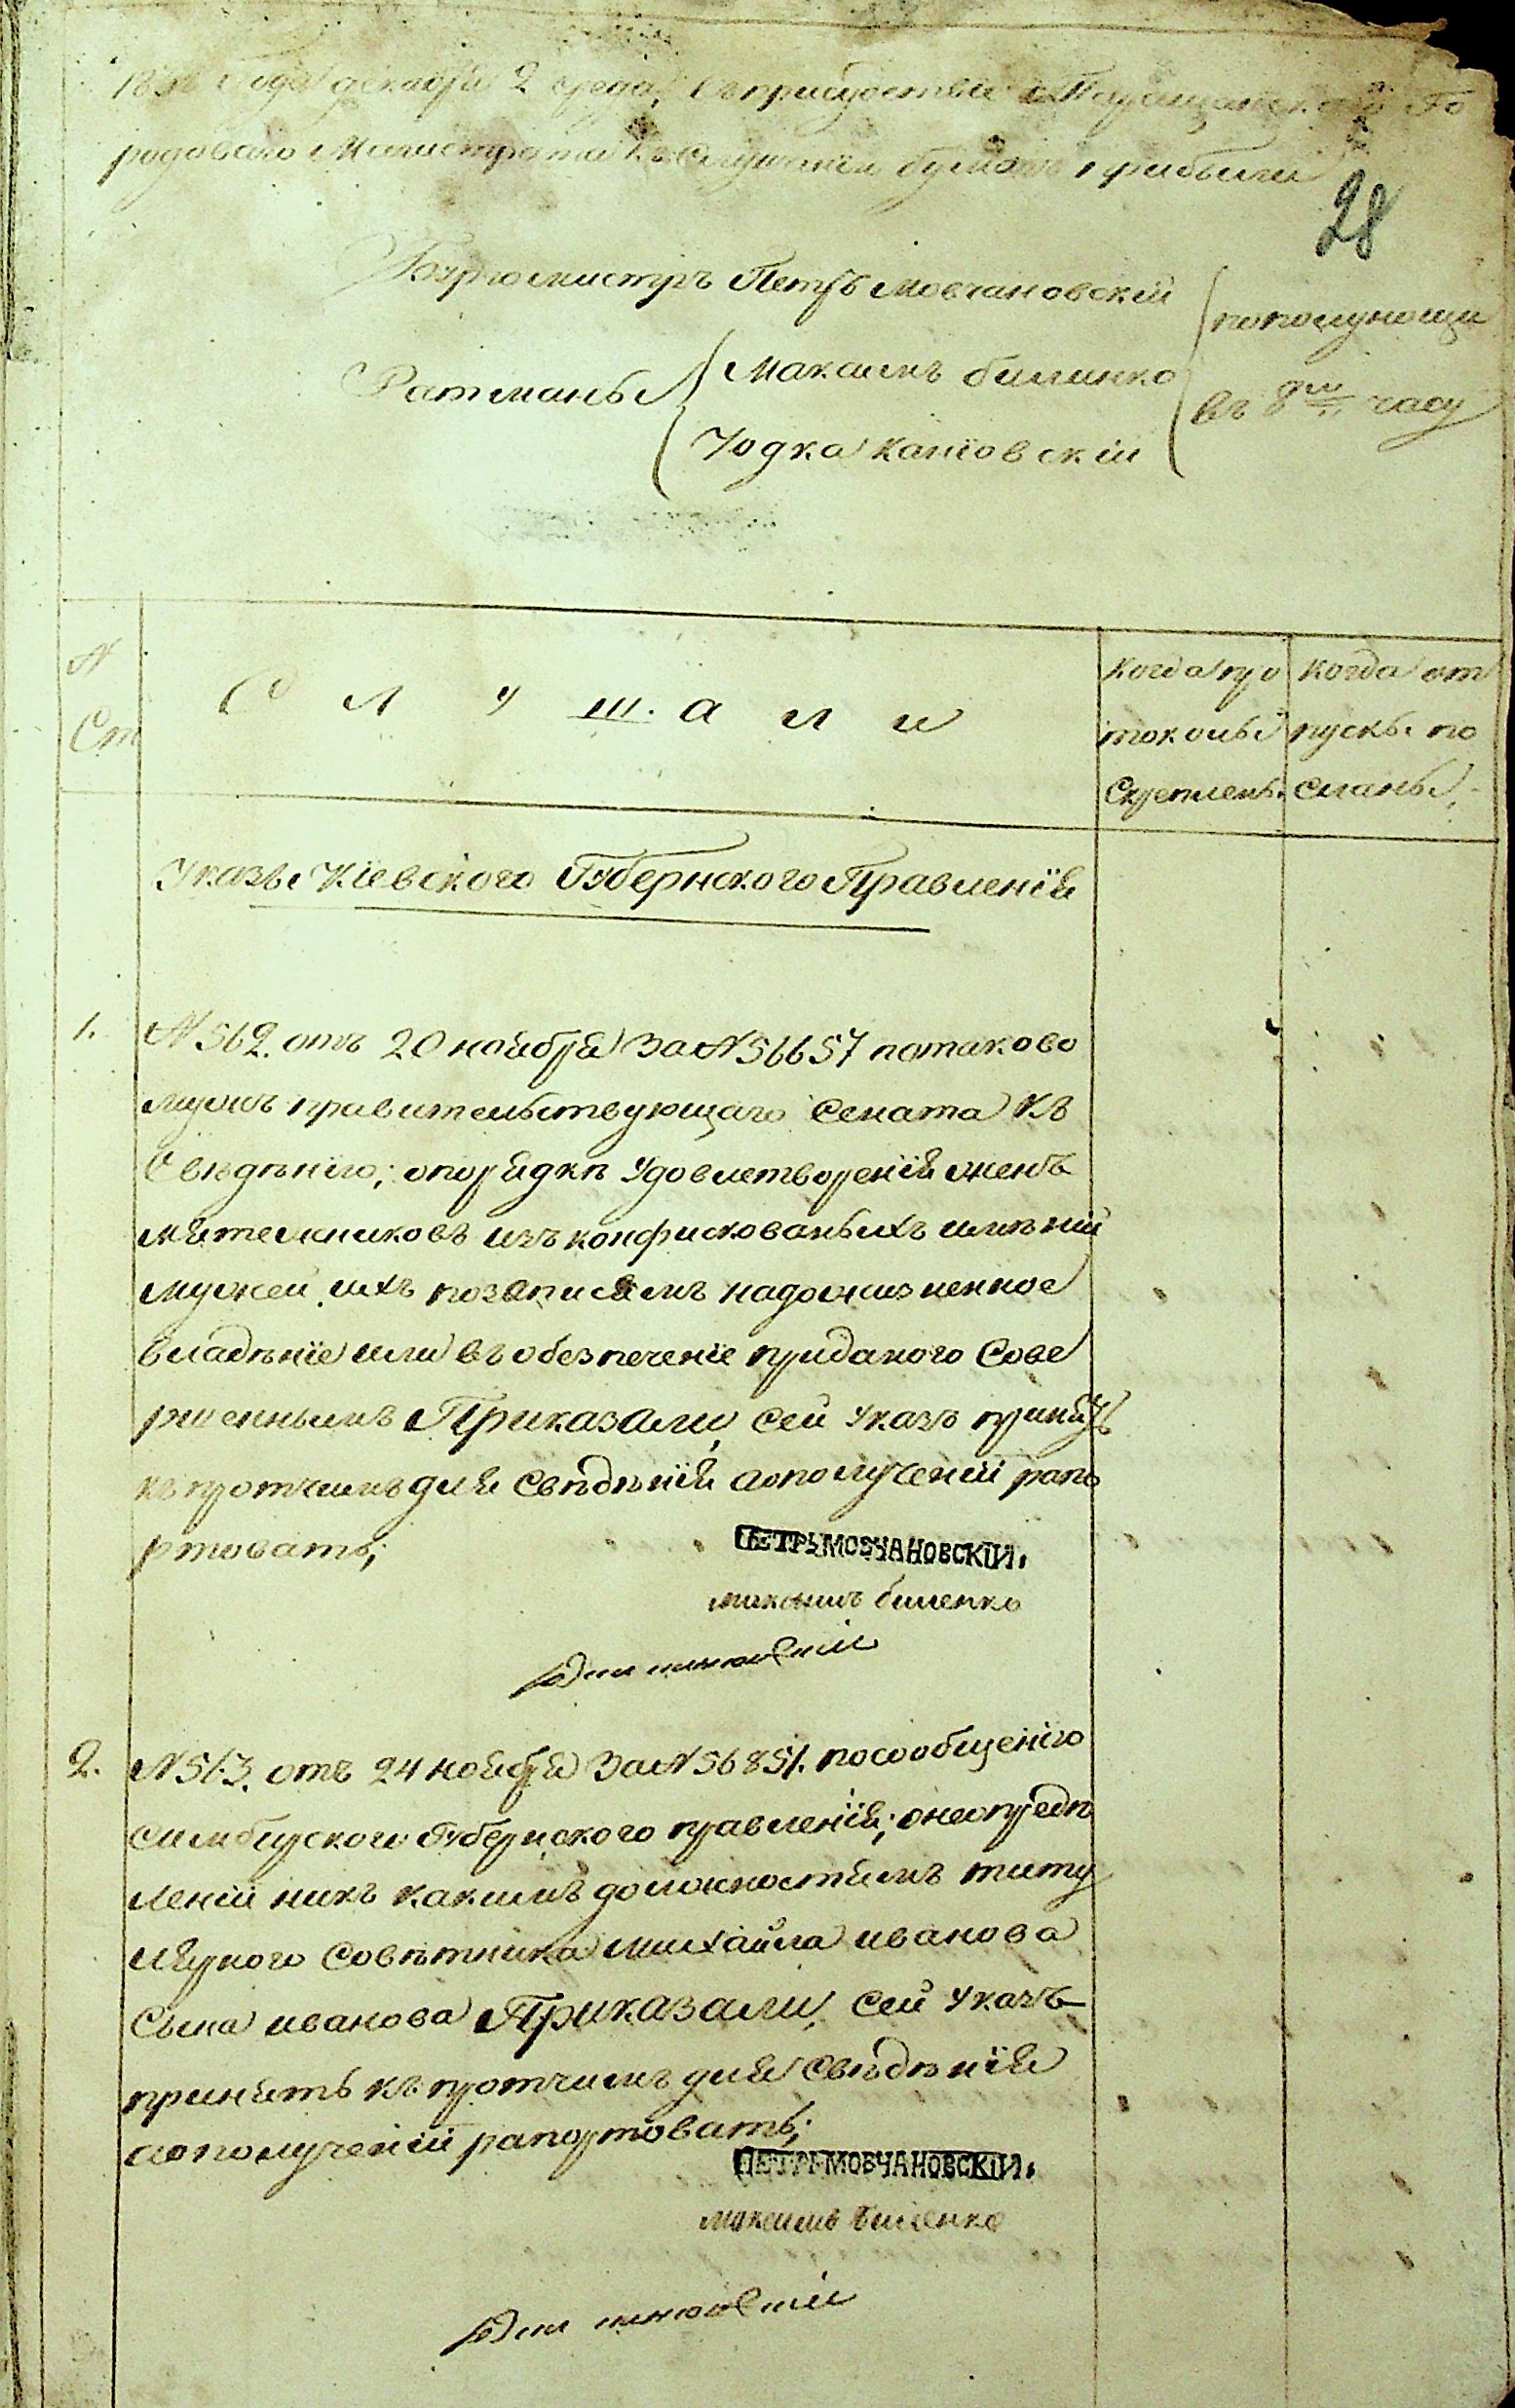 Года декабря 2 среда, въ присудствіе Го
родоваго Магистрата къ слушанію бумагъ прибыли
28
Бургомистръ Петръ Мовчановскій
пополуночи
Ратманы Максимъ билинко
въ 8мъ часу
Юдка каневскій
N
Ст
С л у ш а л и
когда про
токолы
Скреплены.
когда от
пуски по
сланы.
Указы Кіевского Губернского Правленія
1. N 562. отъ 20 ноября За N 56657 потаково
мужъ правительствующаго Сената Къ
Свѣдѣнію; опорядкѣ Удовлетворенія женъ
мятежниковъ изъ конфискованыхъ имѣній
мужей ихъ позаписямъ надожизненное
владѣніе или въ обезпеченіе приданого Сове
ршеннымъ Приказали, Сей Указъ принять
къ протчимъ для Свѣдѣнія аополученіи рапо
ртовать;
ПЕТРЪ МОВЧАНОВСКІЙ.
максимъ биленко
2. N 513. отъ 24 ноября За N 56851. посообщенію
симбирского Губернского правленія; онеопредѣ
леніи никъ какимъ должностямъ титу
лярного Совѣтника Михайла иванова
Сына иванова Приказали, Сей Указъ
принять къ протчимъ для Свѣдѣнія
аополученіи рапортовать;
ПЕТРЪ МОВЧАНОВСКІЙ.
максимъ биленко